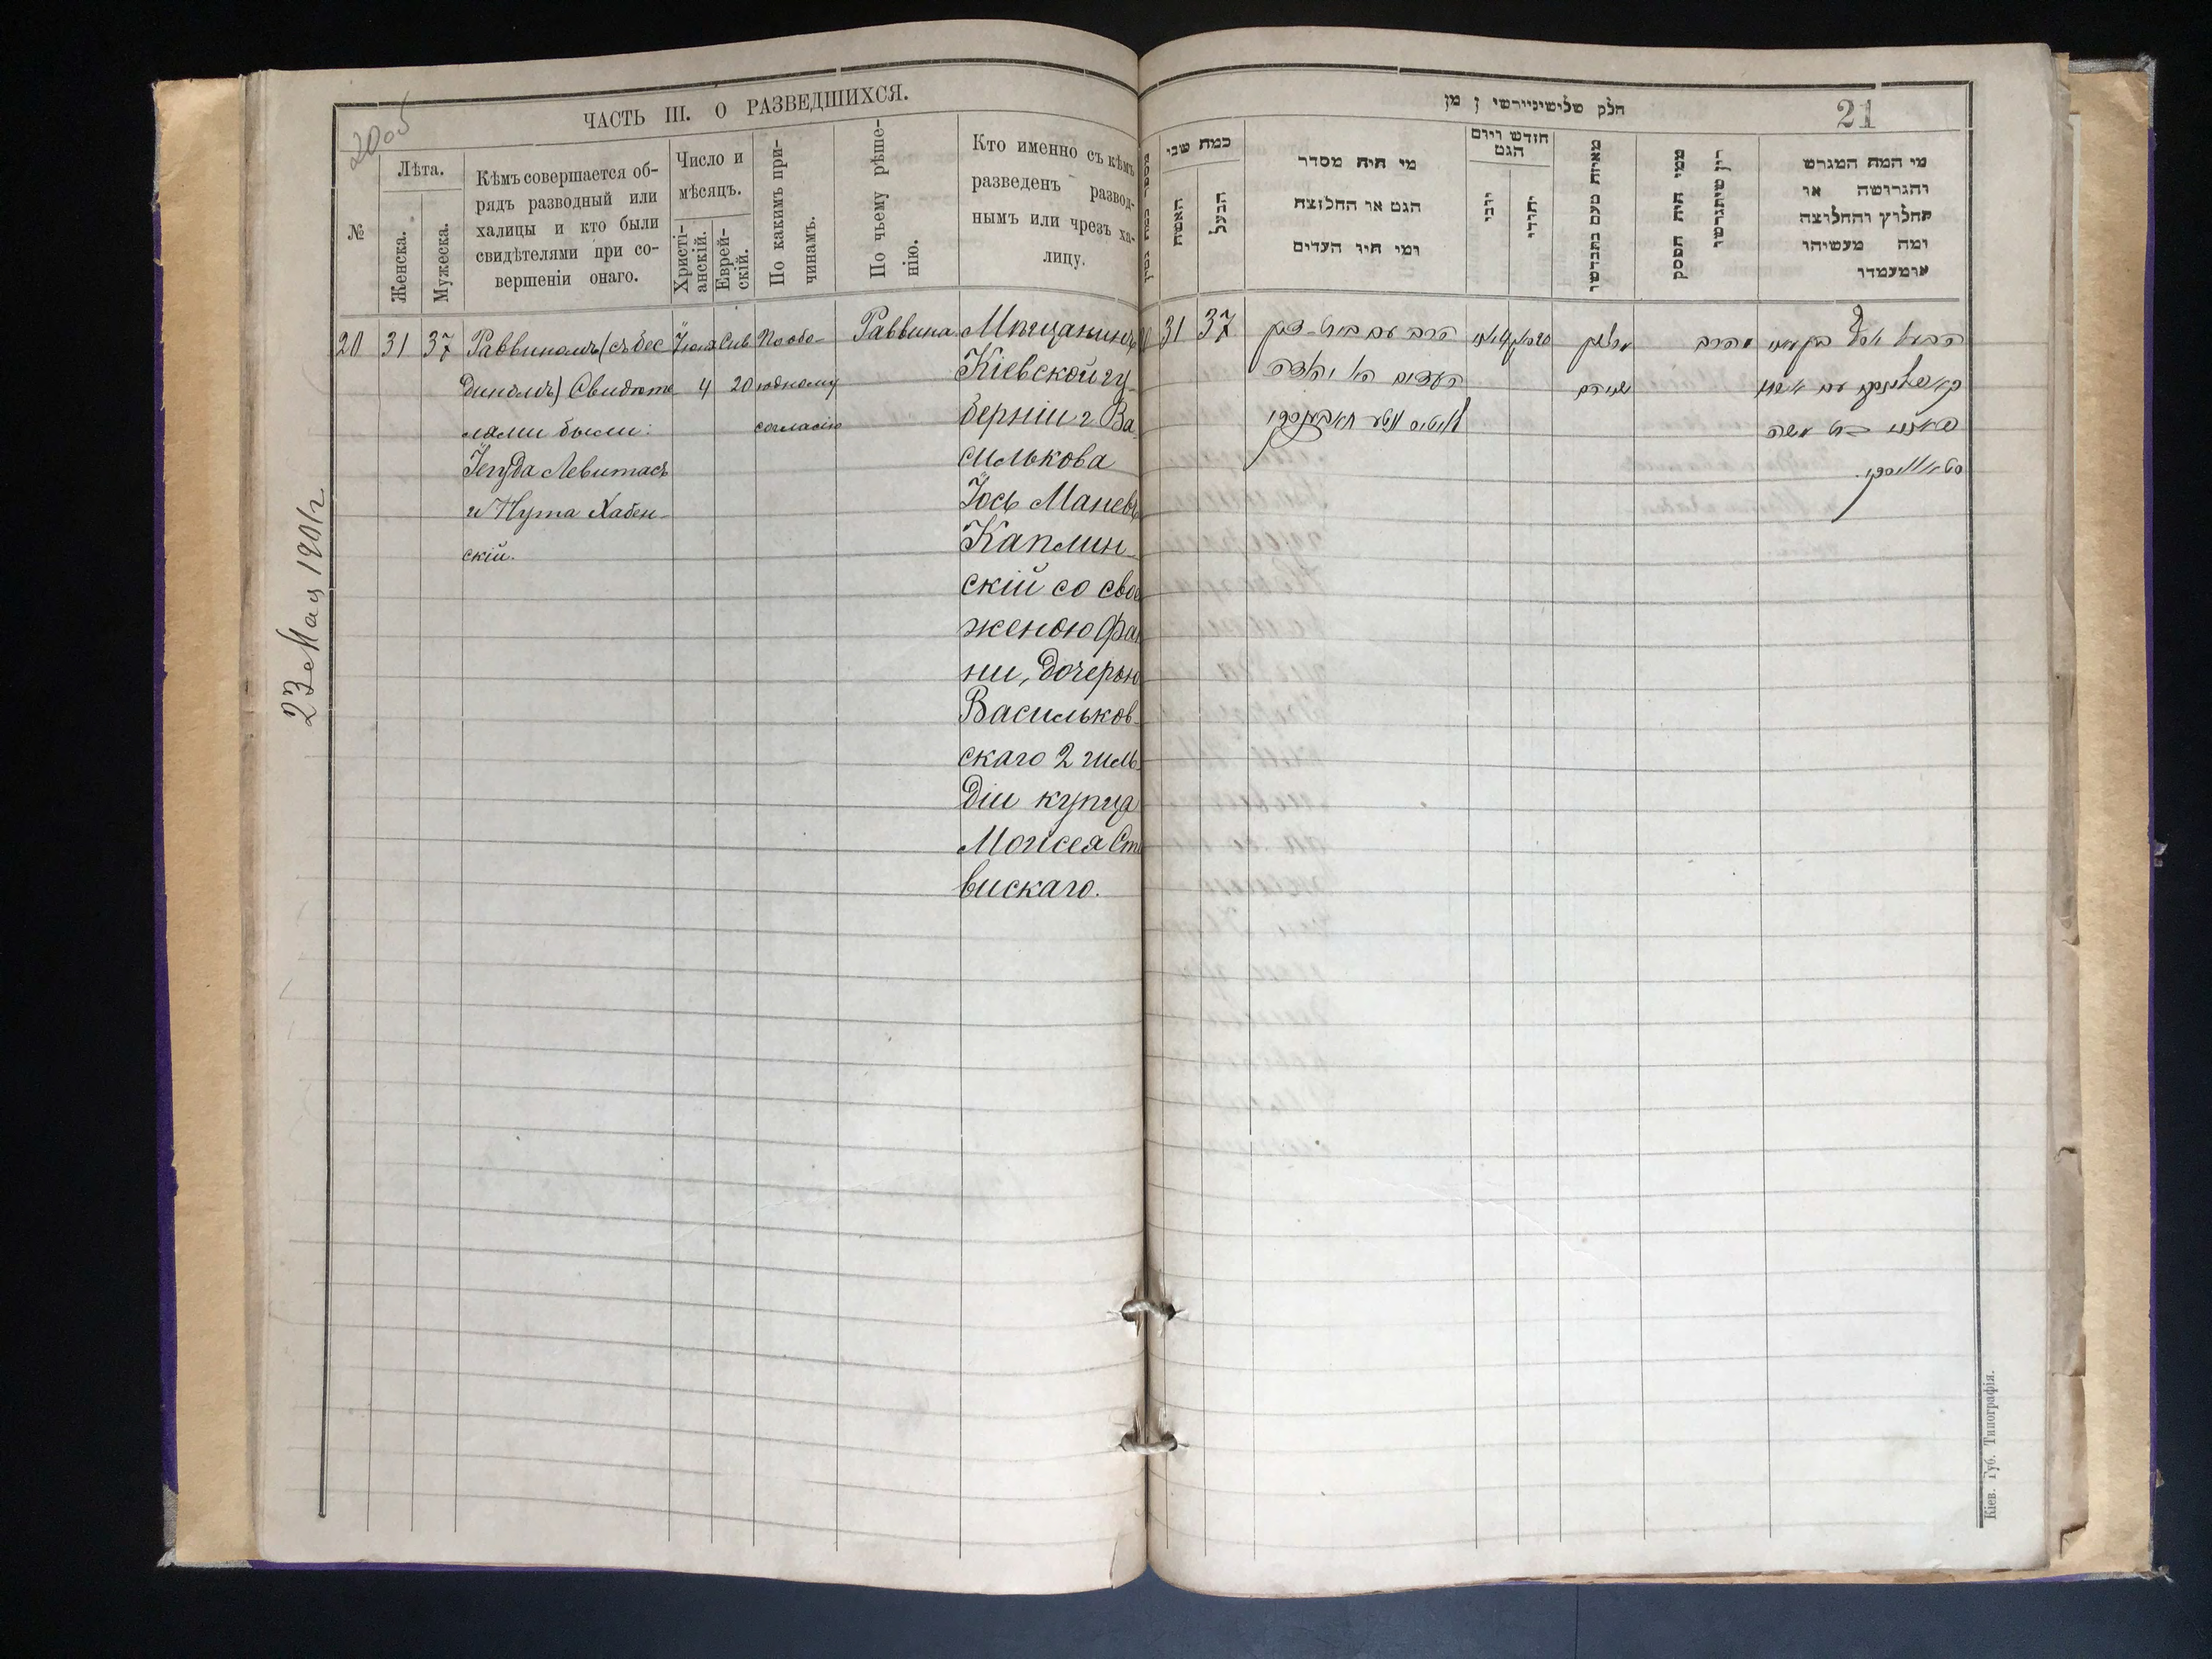 2005
ЧАСТЬ III. О РАЗВЕДШИХСЯ.
№
Лѣта.
Женска.
Мужеска.
Кѣмъ совершается об-
рядъ разводный или
халицы и кто были
свидѣтелями при со-
вершеніи онаго.
Число и
мѣсяцъ.
Христі-
анскій.
Еврей-
скій.
По какимъ при-
чинамъ.
По чьему рѣше-
нію.
Кто именно съ кѣмъ
разведенъ развод-
нымъ или чрезъ ха-
лицу.
20
31
37
Раввиномъ (съ бес
диномъ) Свидѣте
лями были:
Іегуда Левитасъ
и Нута Хабен-
скій.
4
Сив
20
По обо-
юдному
согласію
Раввина
Мѣщанинъ
Кіевской гу-
берніи г Ва
силькова
Іось Маневъ
Каплин-
скій со сво
женою Фа
ни, дочерью
Васильков-
скаго 2 гиль
діи купца
Моисея Ст
вискаго.
23 Мая 1901 г.
21
חלק שלישי
כמה שני
האשה
הבעל
מי היה מסדר
הגט או החלוצה
ומי היו העדים
חודש ויום
הגט
יוני
יהודי
מאיזה טעם נתגרשו
ממי היה הפסק
דין שיתגרשו
מי המה המגרש
והגרושה או
החלוץ והחלוצה
ומה מעשיהו
ומעמדו
31
37
הרב עם בית דין
העדים
הרב
הבעל
עם אשתו
בת משה
Кіев. Губ. Типографія.